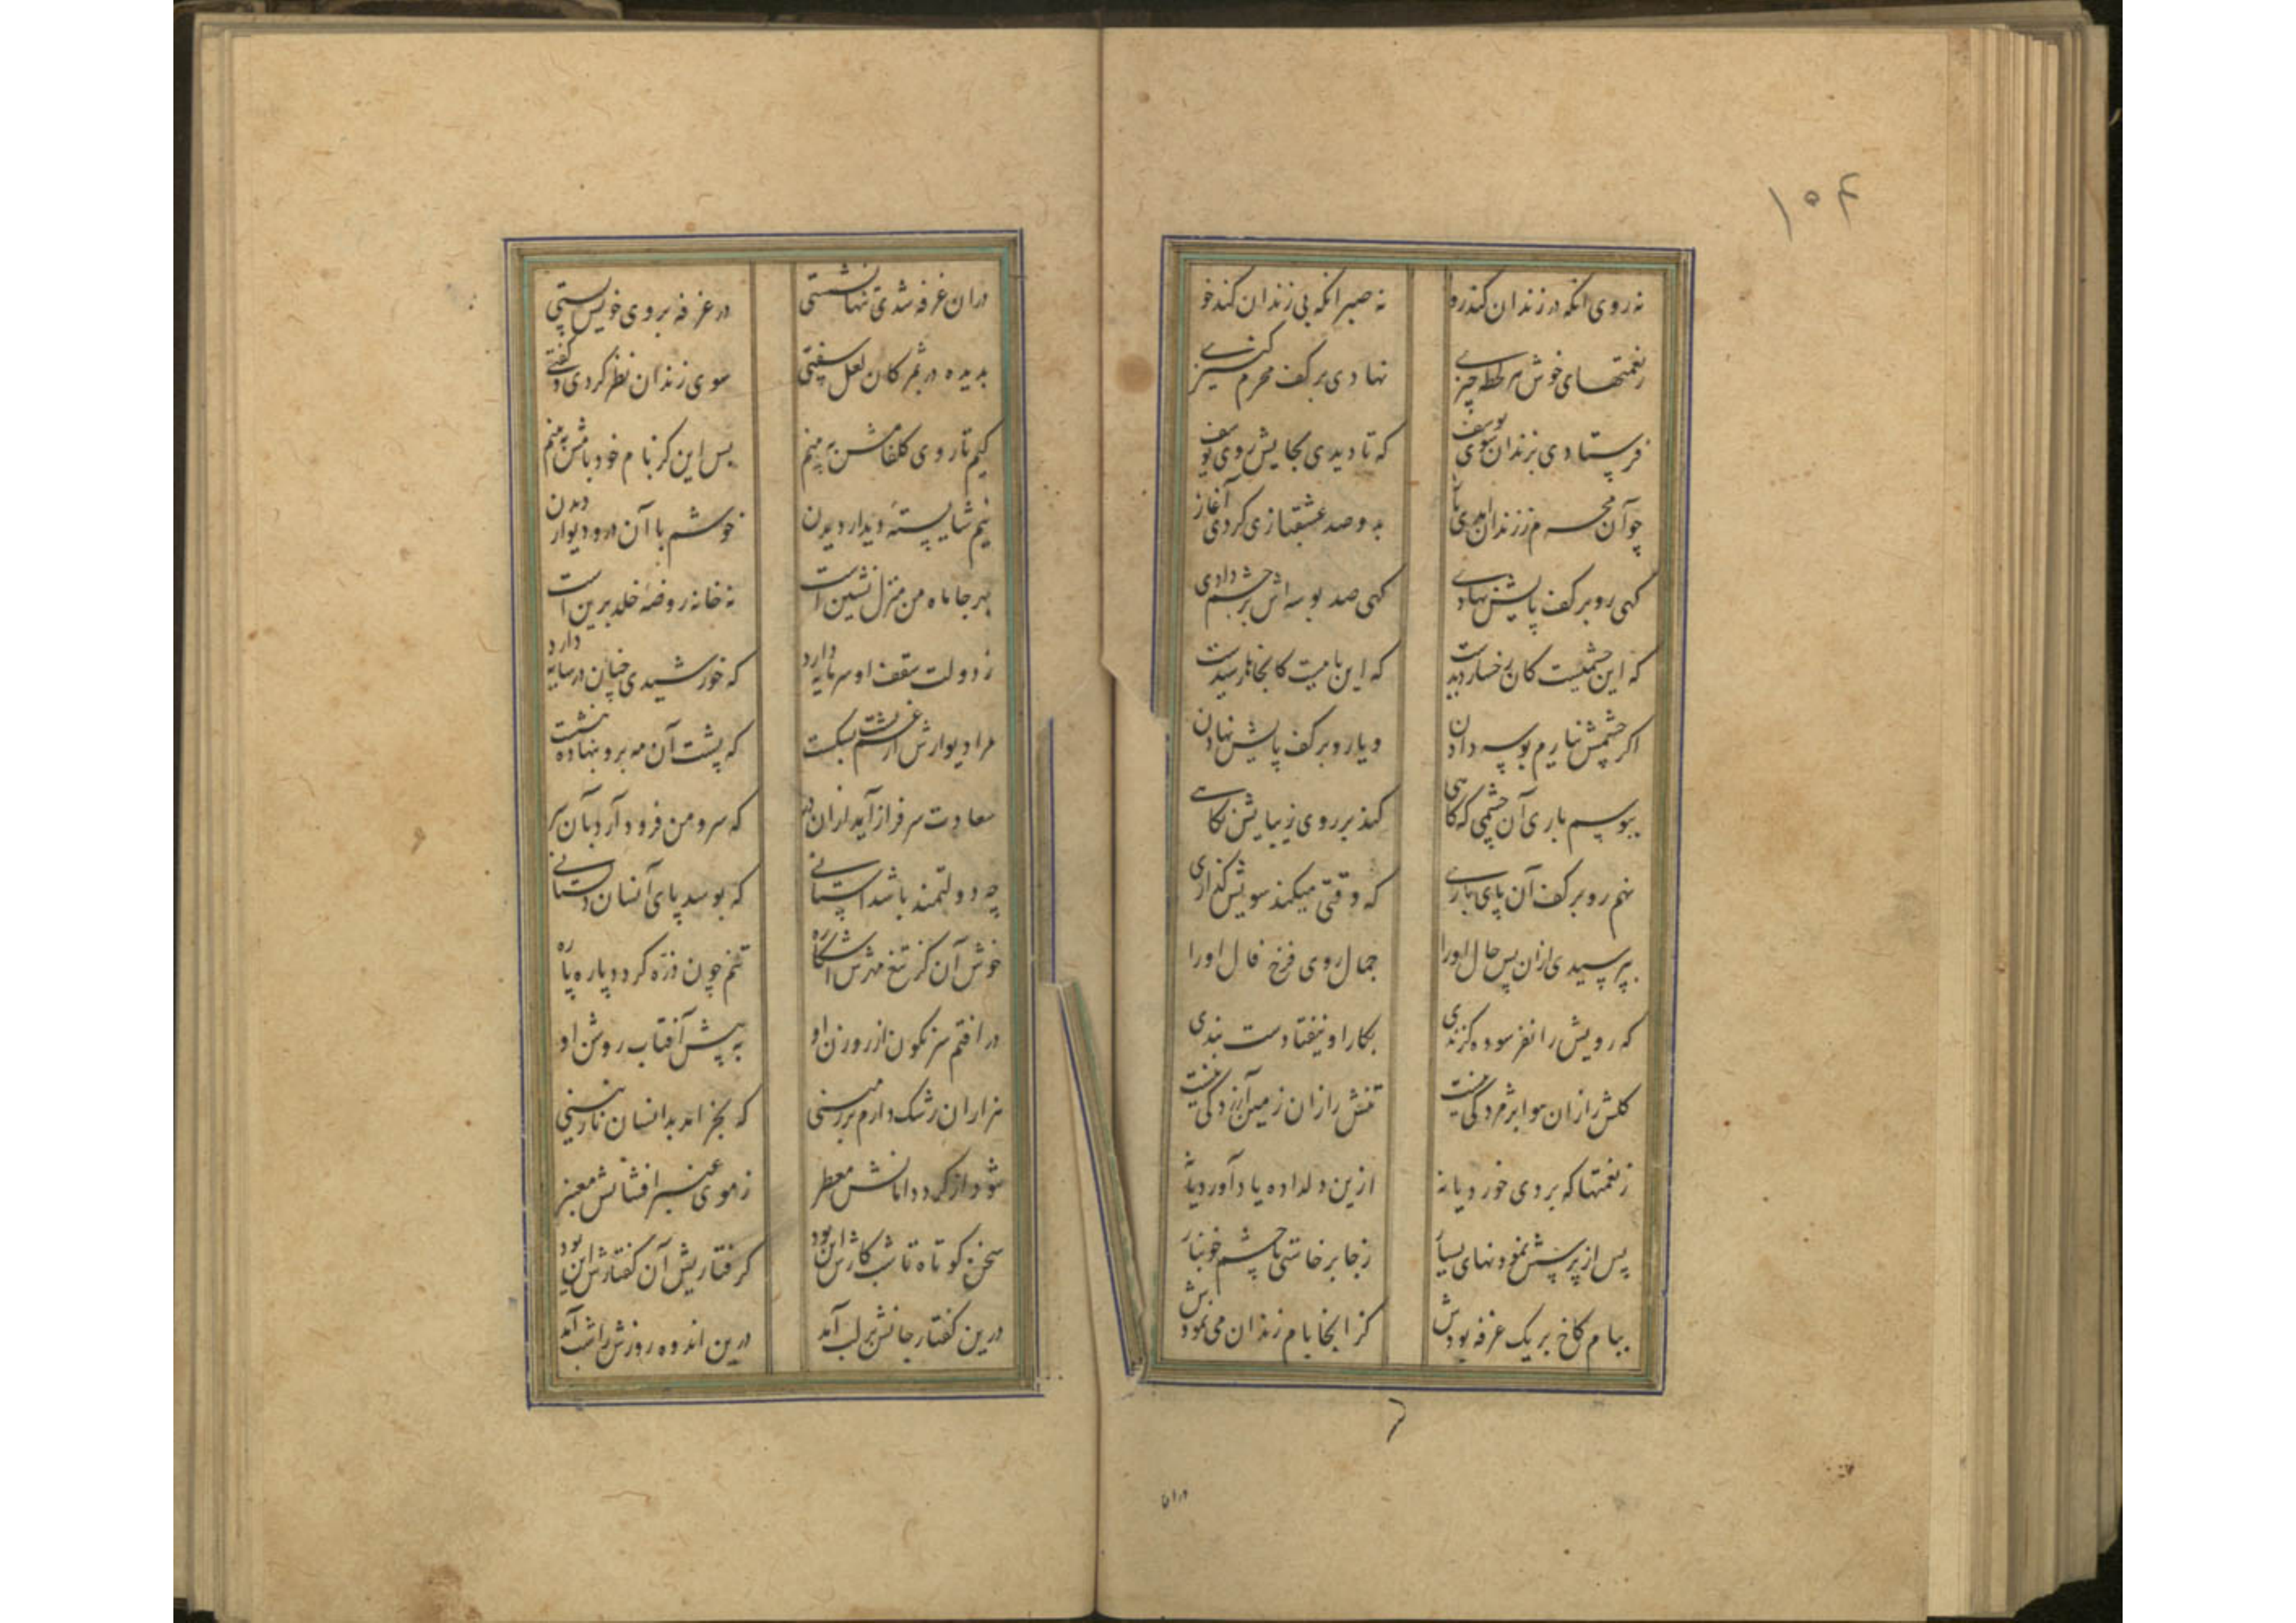 ۱۰۴
نه روی انکه در زندان کند رو نه صبر انکه بی زندان کند خو
ز نعمتهای خوش هر لحظه چیزی نهادی بر کف محرم کنیزی
فرستادی بزندان سوی یوسف که تا دیدی بجایش روی یوسف
چو آن محرم ز زندان آمدی باز بدو صد عشقبازی کردی آغاز
کهی رو بر کف پایش نهادی کهی صد بوسه اش بر چشم دادی
که این چشمیست کان رخسار دیدست که این پاییست کانجاها رسیدست
اکر چشمش نیارم بوسه دادن و یا رو بر کف پایش نهادن
ببوسم باری آن چشمی که کاهی کند بر روی زیبایش نکاهی
نهم رو بر کف آن پای باری که وقتی میکند سویش کذاری
بپرسیدی ازان پس حال او را جمال روی فرخ فال او را
که رویش را نفرسوده کزندی بکار او نیفتادست بندی
کلش را زان هوا پژمردکی نیست تنش را زان زمین آزردکی نیست
ز نعمتها که بردی خورد یا نه ازین دلداده یاد آورد یا نه
پس از پرسش نمودنهای بسیار ز جا برخاستی با چشم خونبار
ببام کاخ بر یک غرفه بودش کز انجا بام زندان می نمودش
دران
دران غرفه شدی تنها نشستی در غرفه بروی خویش بستی
بدیده در بمژکان لعل سفتی سوی زندان نظر کردی و کفتی
کیم تا روی کلفامش ببینم پس این کز بام خود بامش ببینم
نیم شایسته دیدار دیدن خوشم با آن در و دیوار دیدن
بهر جا ماه من منزل نشین است نه خانه روضه خلد برین است
ز دولت سقف او سرمایه دارد که خورشیدی چنان در سایه دارد
مرا دیوارش از غم پشت بشکست که پشت آن مه برو بنهاده بنشست
سعادت سرفراز آید ازان در که سرو من فرود آرد بآن سر
چه دولتمند باشد آستانی که بوسد پای آنسان دلستانی
خوش آن کز تیغ مهرش آشکاره تنم چون ذره کردد پاره پاره
در افتم سرنکون از روزن او به پیش آفتاب روشن او
هزاران رشک دارم بر زمینی که بخرامد بدانسان نازنینی
شود از کرد دامانش معطر ز موی عنبر افشانش معنبر
سخن کوتاه تا شب کارش این بود کرفتاریش آن کفتارش این بود
درین کفتار جانش بر لب آمد درین اندوه روزش را شب آمد